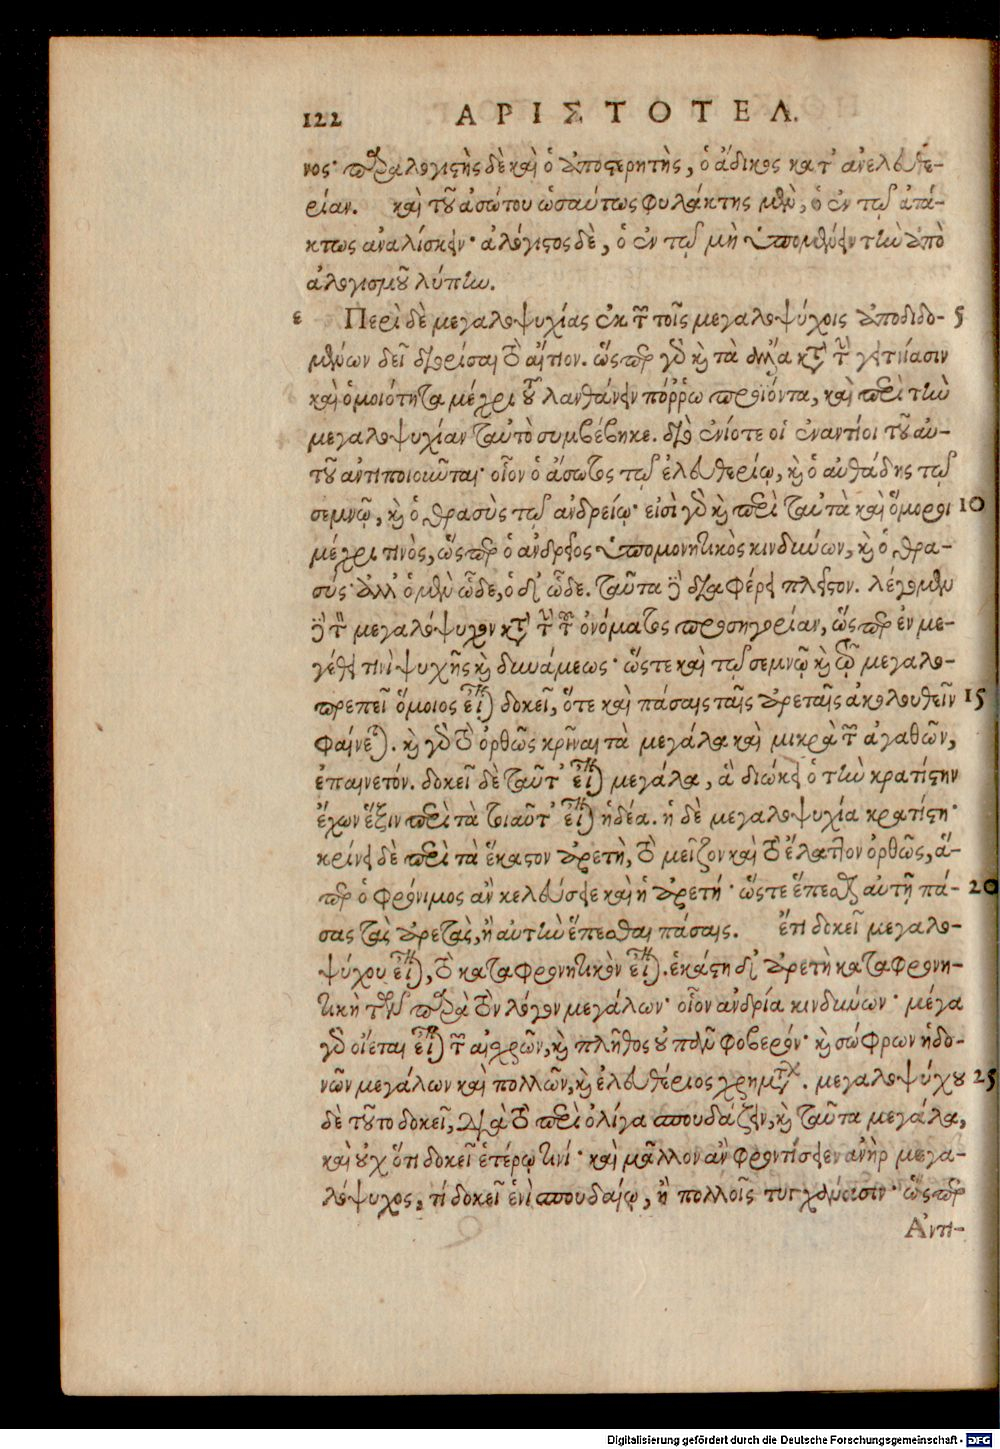 122 ΑΡΙΣΤΟΤΕΛ.
νος· παραλογιστὴς δὲ καὶ ὁ ἀποστερητὴς, ὁ ἄδικος κατ' ἀνελευθε-
ρίαν. καὶ τοῦ ἀσώτου ὡσαύτως φυλάκτης μὲν, ὁ ἐν τῷ ἀτά-
κτως ἀναλίσκειν· ἀλόγιστος δὲ, ὁ ἐν τῷ μὴ ὑπομένειν τὴν ἀπὸ
ἀλογισμοῦ λύπην.
ε Περὶ δὲ μεγαλοψυχίας ἐκ τῶν τοῖς μεγαλοψύχοις ἀποδιδο- 5
μένων δεῖ διορίσαι τὸ αἴτιον. ὥσπερ γὰρ καὶ τὰ ἄλλα κατὰ τὴν γειτνίασιν
καὶ ὁμοιότητα μέχρι τοῦ λανθάνειν πόῤῥω προϊόντα, καὶ περὶ τὴν
μεγαλοψυχίαν ταὐτὸ συμβέβηκε. διὸ ἐνίοτε οἱ ἐναντίοι τοῦ αὐ-
τοῦ ἀντιποιοῦνται· οἷον ὁ ἄσωτος τῷ ἐλευθερίῳ, καὶ ὁ αὐθάδης τῷ
σεμνῷ, καὶ ὁ θρασὺς τῷ ἀνδρείῳ· εἰσὶ γὰρ καὶ περὶ ταὐτὰ καὶ ὅμοροι 10
μέχρι τινὸς, ὥσπερ ὁ ἀνδρεῖος ὑπομονητικὸς κινδύνων, καὶ ὁ θρα-
σύς· ἀλλ' ὁ μὲν ὧδε, ὁ δ' ὧδε. ταῦτα δὲ διαφέρει πλεῖστον. λέγομεν
δὲ τὸν μεγαλόψυχον κατὰ τὴν τοῦ ὀνόματος προσηγορίαν, ὥσπερ ἐν με-
γέθει τινὶ ψυχῆς καὶ δυνάμεως· ὥστε καὶ τῷ σεμνῷ καὶ τῷ μεγαλο-
πρεπεῖ ὅμοιος εἶναι δοκεῖ, ὅτε καὶ πάσαις ταῖς ἀρεταῖς ἀκολουθεῖν 15
φαίνεται. καὶ γὰρ τὸ ὀρθῶς κρῖναι τὰ μεγάλα καὶ μικρὰ τῶν ἀγαθῶν,
ἐπαινετόν. δοκεῖ δὲ ταῦτ' εἶναι μεγάλα, ἃ διώκει ὁ τὴν κρατίστην
ἔχων ἕξιν περὶ τὰ τοιαῦτ' εἶναι ἡδέα. ἡ δὲ μεγαλοψυχία κρατίστη·
κρίνει δὲ περὶ τὰ ἕκαστον ἀρετὴ, τὸ μεῖζον καὶ τὸ ἔλαττον ὀρθῶς, ἅ-
περ ὁ φρόνιμος ἂν κελεύσειε καὶ ἡ ἀρετή· ὥστε ἕπεσθαι αὐτῇ πά- 20
σας τὰς ἀρετὰς, ἢ αὐτὴν ἕπεσθαι πάσαις. ἔτι δοκεῖ μεγαλο-
ψύχου εἶναι, τὸ καταφρονητικὸν εἶναι. ἑκάστη δ' ἀρετὴ καταφρονη-
τικὴ τῶν παρὰ τὸν λόγον μεγάλων· οἷον ἀνδρία κινδύνων· μέγα
γὰρ οἴεται εἶναι τῶν αἰσχρῶν, καὶ πλῆθος οὐ πᾶν φοβερόν· καὶ σώφρων ἡδο-
νῶν μεγάλων καὶ πολλῶν, καὶ ἐλευθέριος χρημάτων. μεγαλοψύχου 25
δὲ τοῦτο δοκεῖ, διὰ τὸ περὶ ὀλίγα σπουδάζειν, καὶ ταῦτα μεγάλα,
καὶ οὐχ ὅτι δοκεῖ ἑτέρῳ τινί· καὶ μᾶλλον ἂν φροντίσειεν ἀνὴρ μεγα-
λόψυχος, τί δοκεῖ ἑνὶ σπουδαίῳ, ἢ πολλοῖς τυγχάνουσιν· ὥσπερ
Ἀντι-
Digitalisierung gefördert durch die Deutsche Forschungsgemeinschaft - DFG